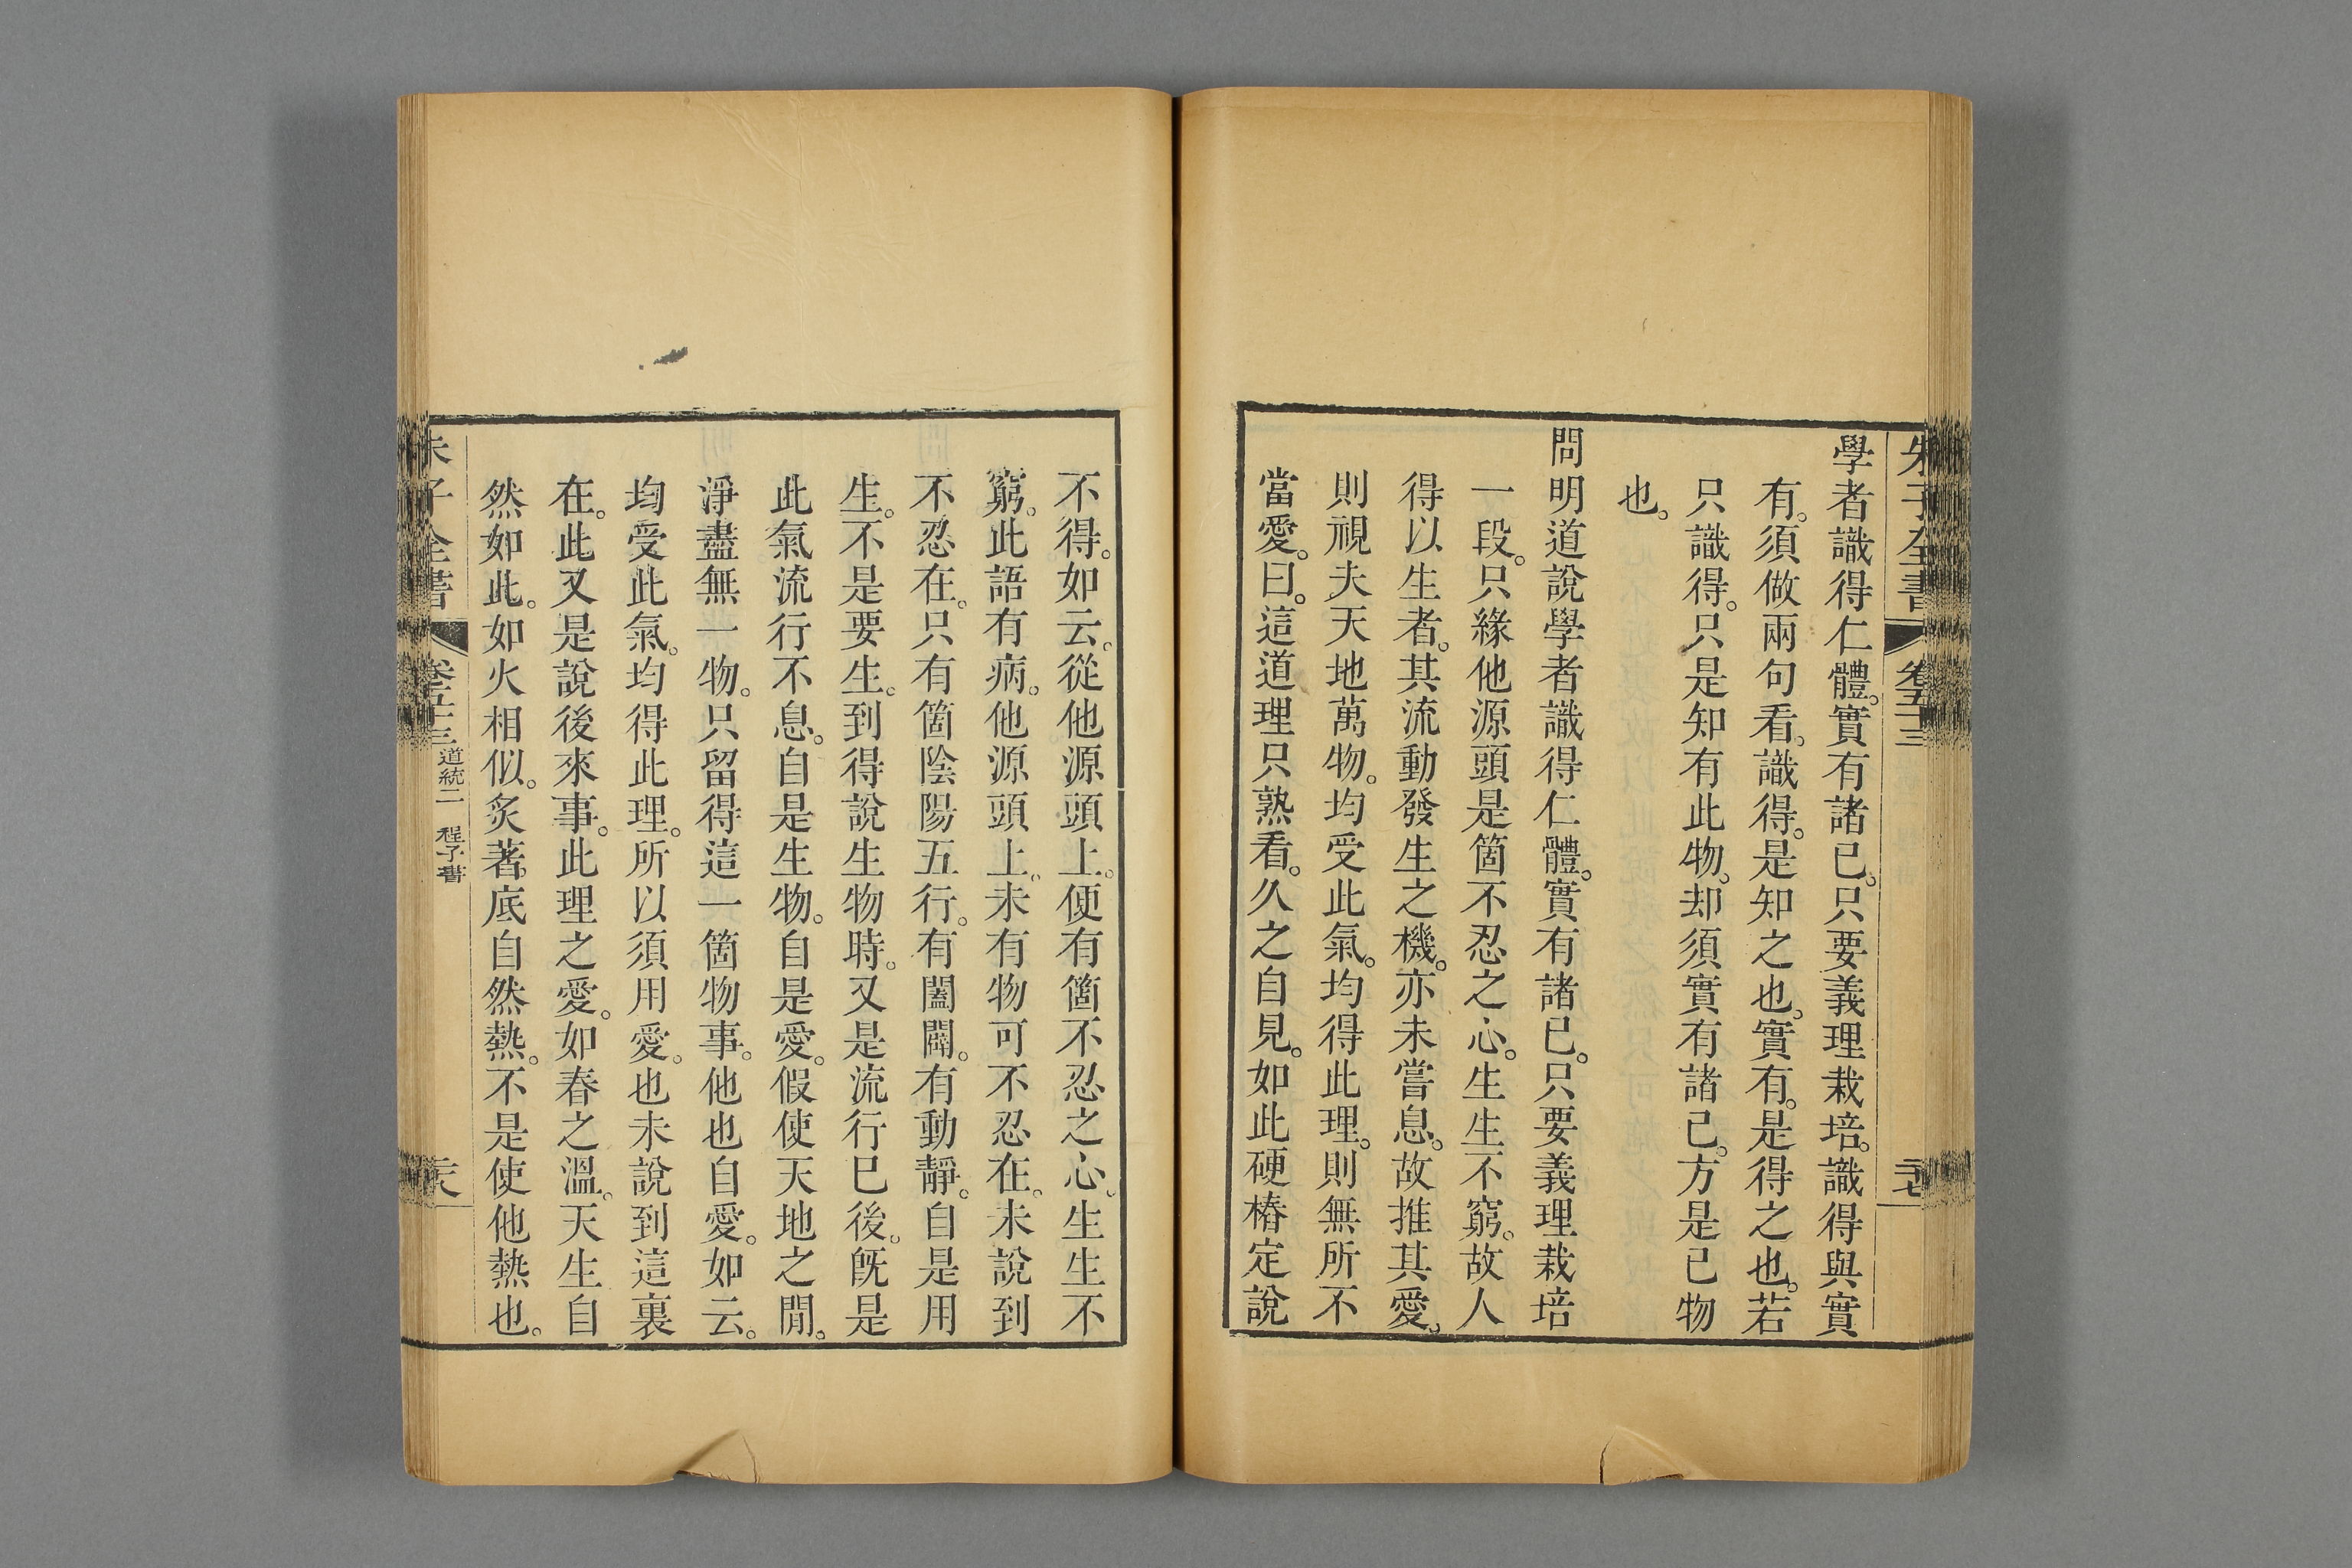 朱子全書 卷五十三 二十七
學者識得仁體。實有諸己。只要義理栽培。識得與實
有。須做兩句看。識得。是知之也。實有。是得之也。若
只識得。只是知有此物。却須實有諸己。方是已物
也。
問明道說學者識得仁體。實有諸已。只要義理栽培
一段。只緣他源頭是箇不忍之心。生生不窮。故人
得以生者。其流動發生之機。亦未嘗息。故推其愛。
則視夫天地萬物。均受此氣。均得此理。則無所不
當愛。曰。這道理只熟看。久之自見。如此硬樁定說
不得。如云。從他源頭上。便有箇不忍之心。生生不
窮。此語有病。他源頭上。未有物可不忍在。未說到
不忍在。只有箇陰陽五行。有闔闢。有動靜。自是用
生。不是要生。到得說生物時。又是流行已後。旣是
此氣流行不息。自是生物。自是愛。假使天地之閒。
淨盡無一物。只留得這一箇物事。他也自愛。如云。
均受此氣。均得此理。所以須用愛。也未說到這裏
在。此又是說後來事。此理之愛。如春之溫。天生自
然如此。如火相似。炙著。底自然熱。不是使他熱也。
朱子全書 卷五十三 道統二 程子書 二十八